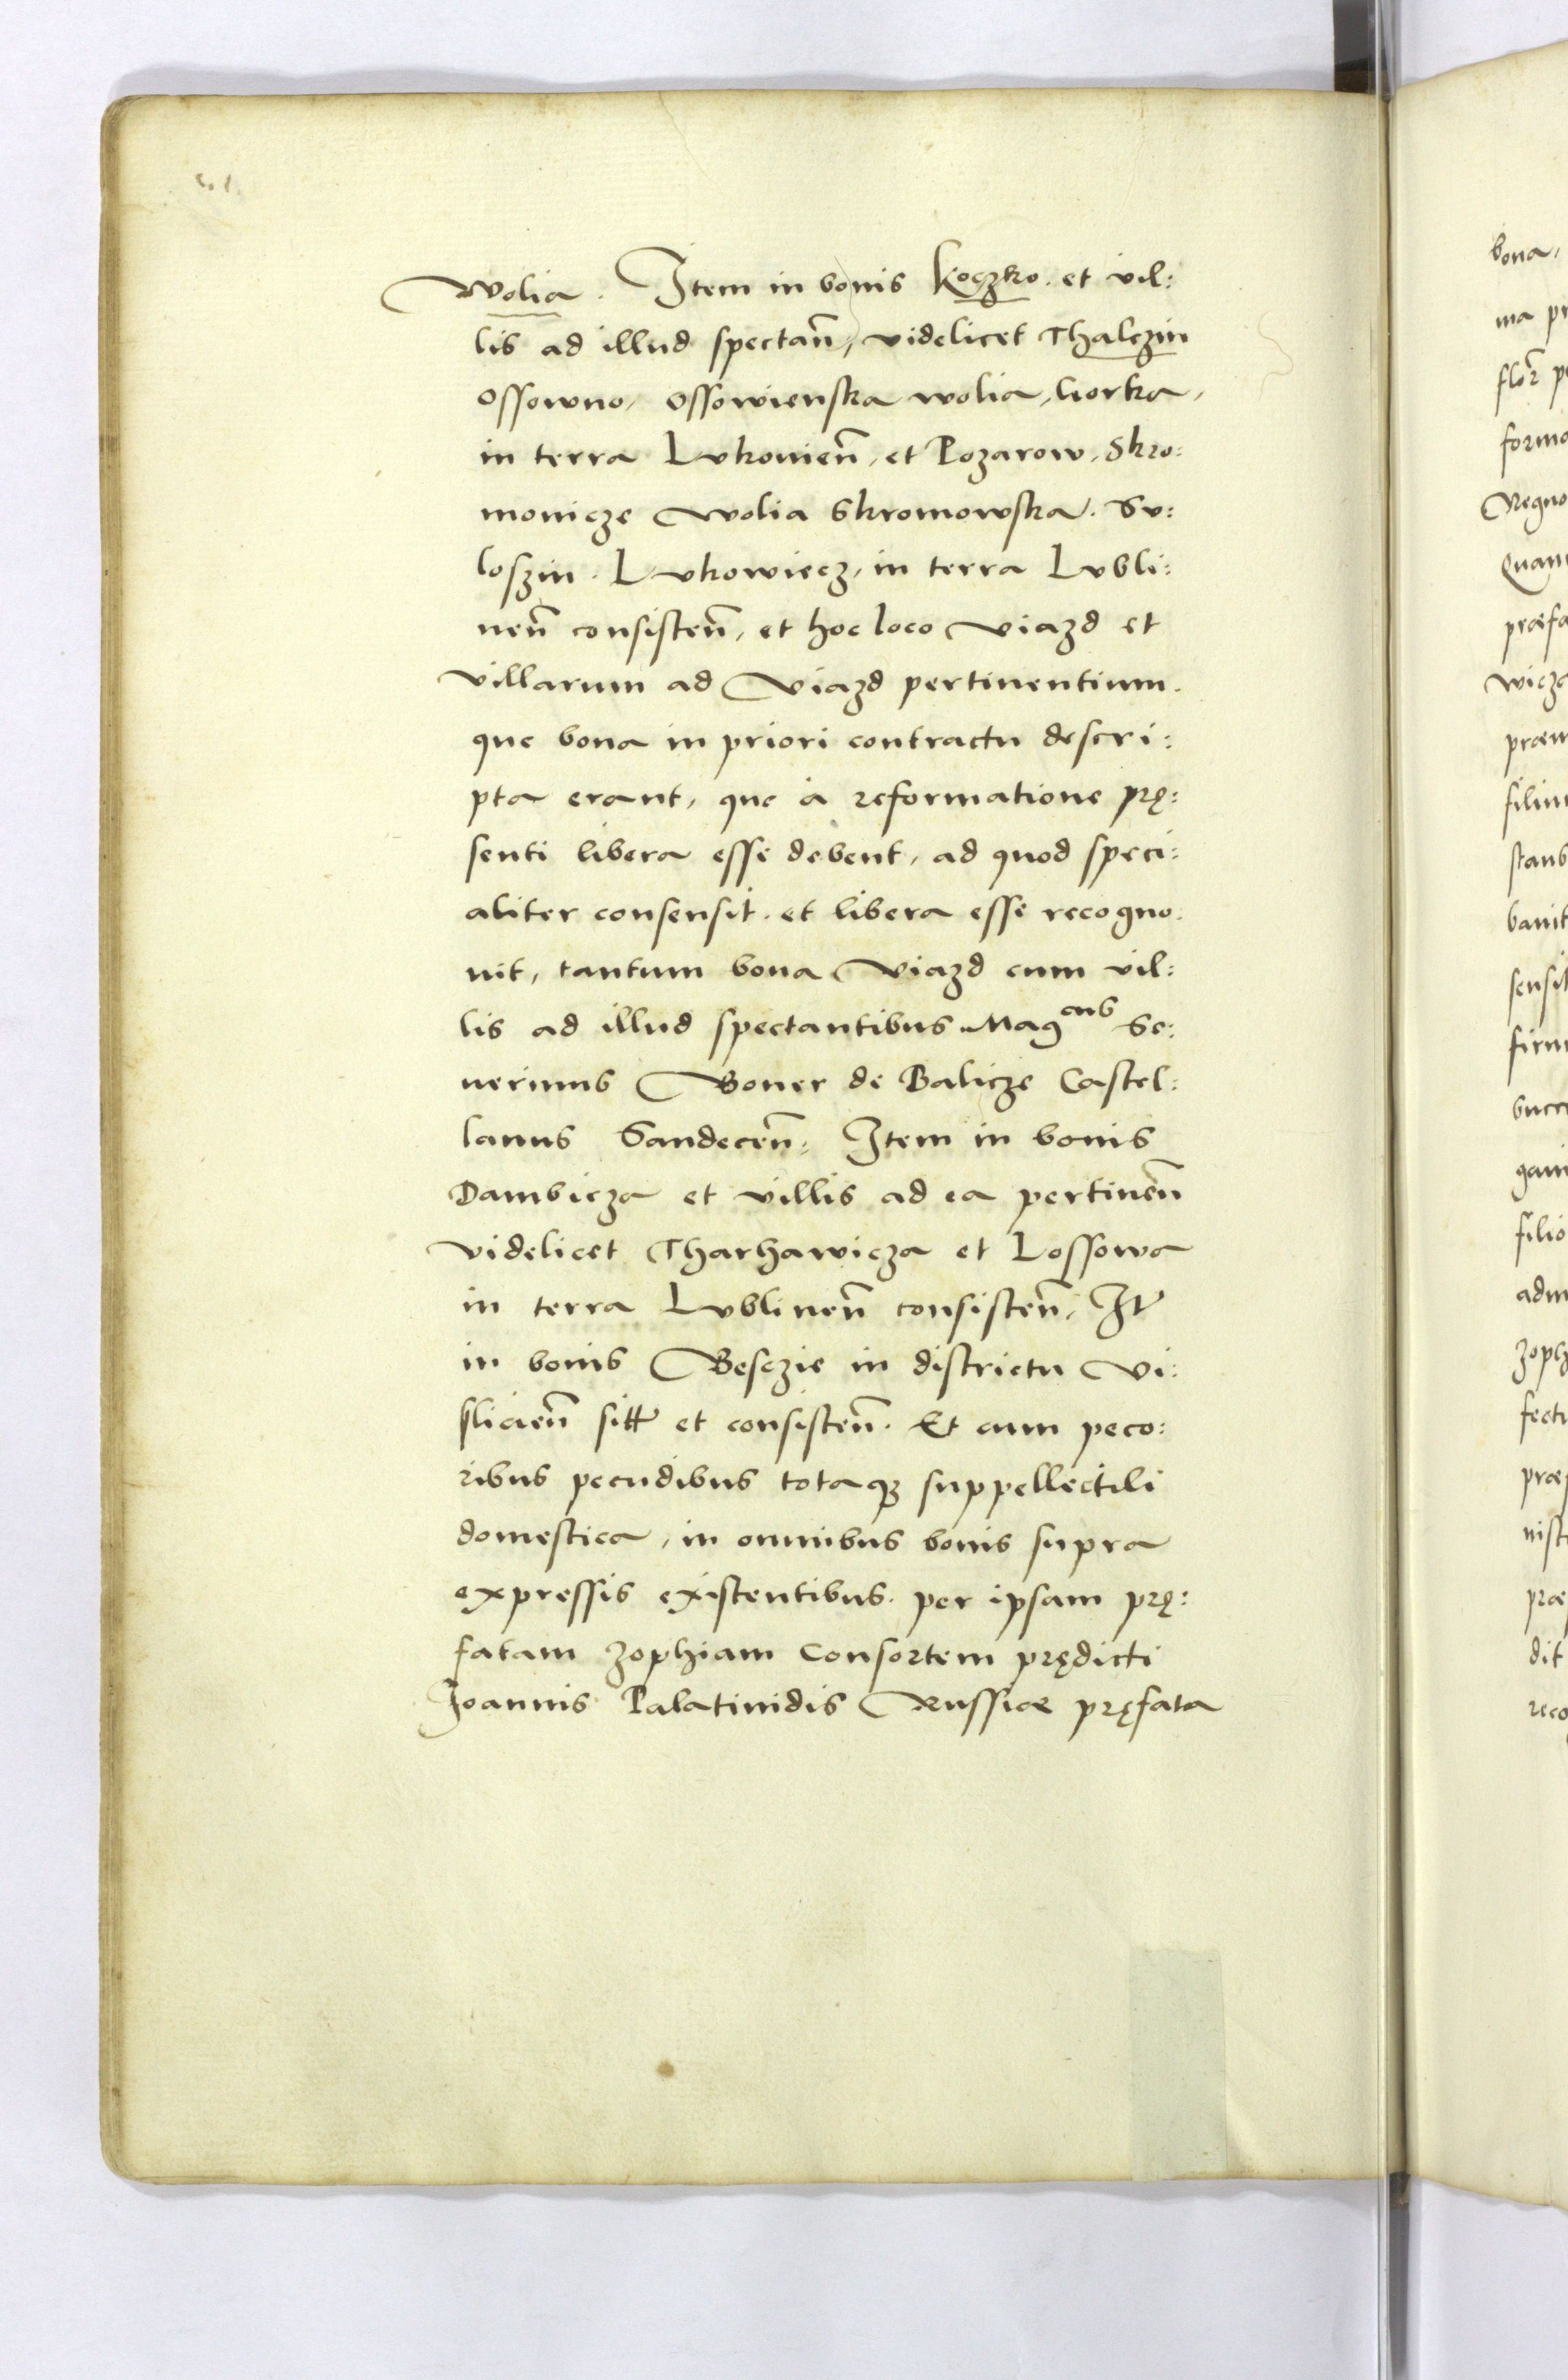 Wolia. Item in bonis Koczko. et vil:
lis ad illud spectan̄, videlicet Thalczin
Ossowno, Ossowienska wolia, Gorka,
in terra Lukouien̄, et Pozarow, Skro:
monicze Wolia Skromowska. Su:
loszin. Lukowiecz, in terra Lubli:
nen̄ consisten̄, et hoc loco Viazd et
villarum ad Viazd pertinentium.
que bona in priori contractu descri:
pta erant, que à reformatione prę:
senti libera esse debent, ad quod speci:
aliter consensit. et libera esse recogno:
uit, tantum bona Viazd cum vil:
lis ad illud spectantibus Mag^cus Se:
uerinus Boner de Balicze Castel:
lanus Sandecen̄, Item in bonis
Dambicza et villis ad ea pertinen̄
videlicet Tharhawicza et Lossowa
in terra Lublinen̄ consisten̄, It
in bonis Besczie in districtu Vi:
slicien̄ sitt et consisten̄. Et cum peco:
ribus pecudibus totaqꝫ suppellectili
domestica, in omnibus bonis supra
expressis existentibus. per ipsam prę:
fatam Zophiam Consortem prędicti
Joannis Palatinidis Russiae pręfata
bona,
ma pr
flor̄ p
forma
Regno
Quam
præfa
wicza
præm
filiu
stans
banit
sensit
firm
bucc
gam
filio
adm
Zoph
fectu
præ
nist
præ
dit
reco